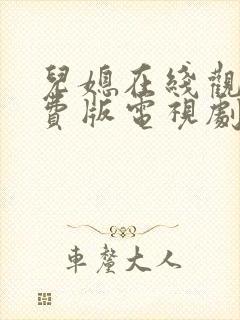 兒媳在綫觀
費版電視劇
車釐大人